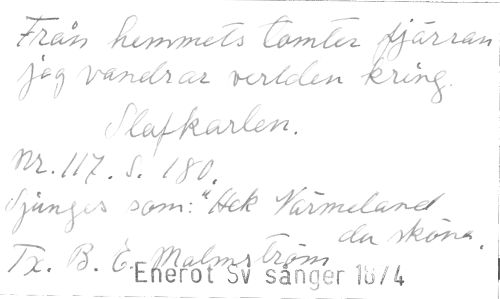 Från hemmets tomter fjärran
jag vandrar verlden kring.
Slafkarlen.
Nr. 117. S. 180.
Sjunges som: "Ack Värmeland
du sköna.
Tx. B. E. Malmström
Enerot Sv sånger 1874